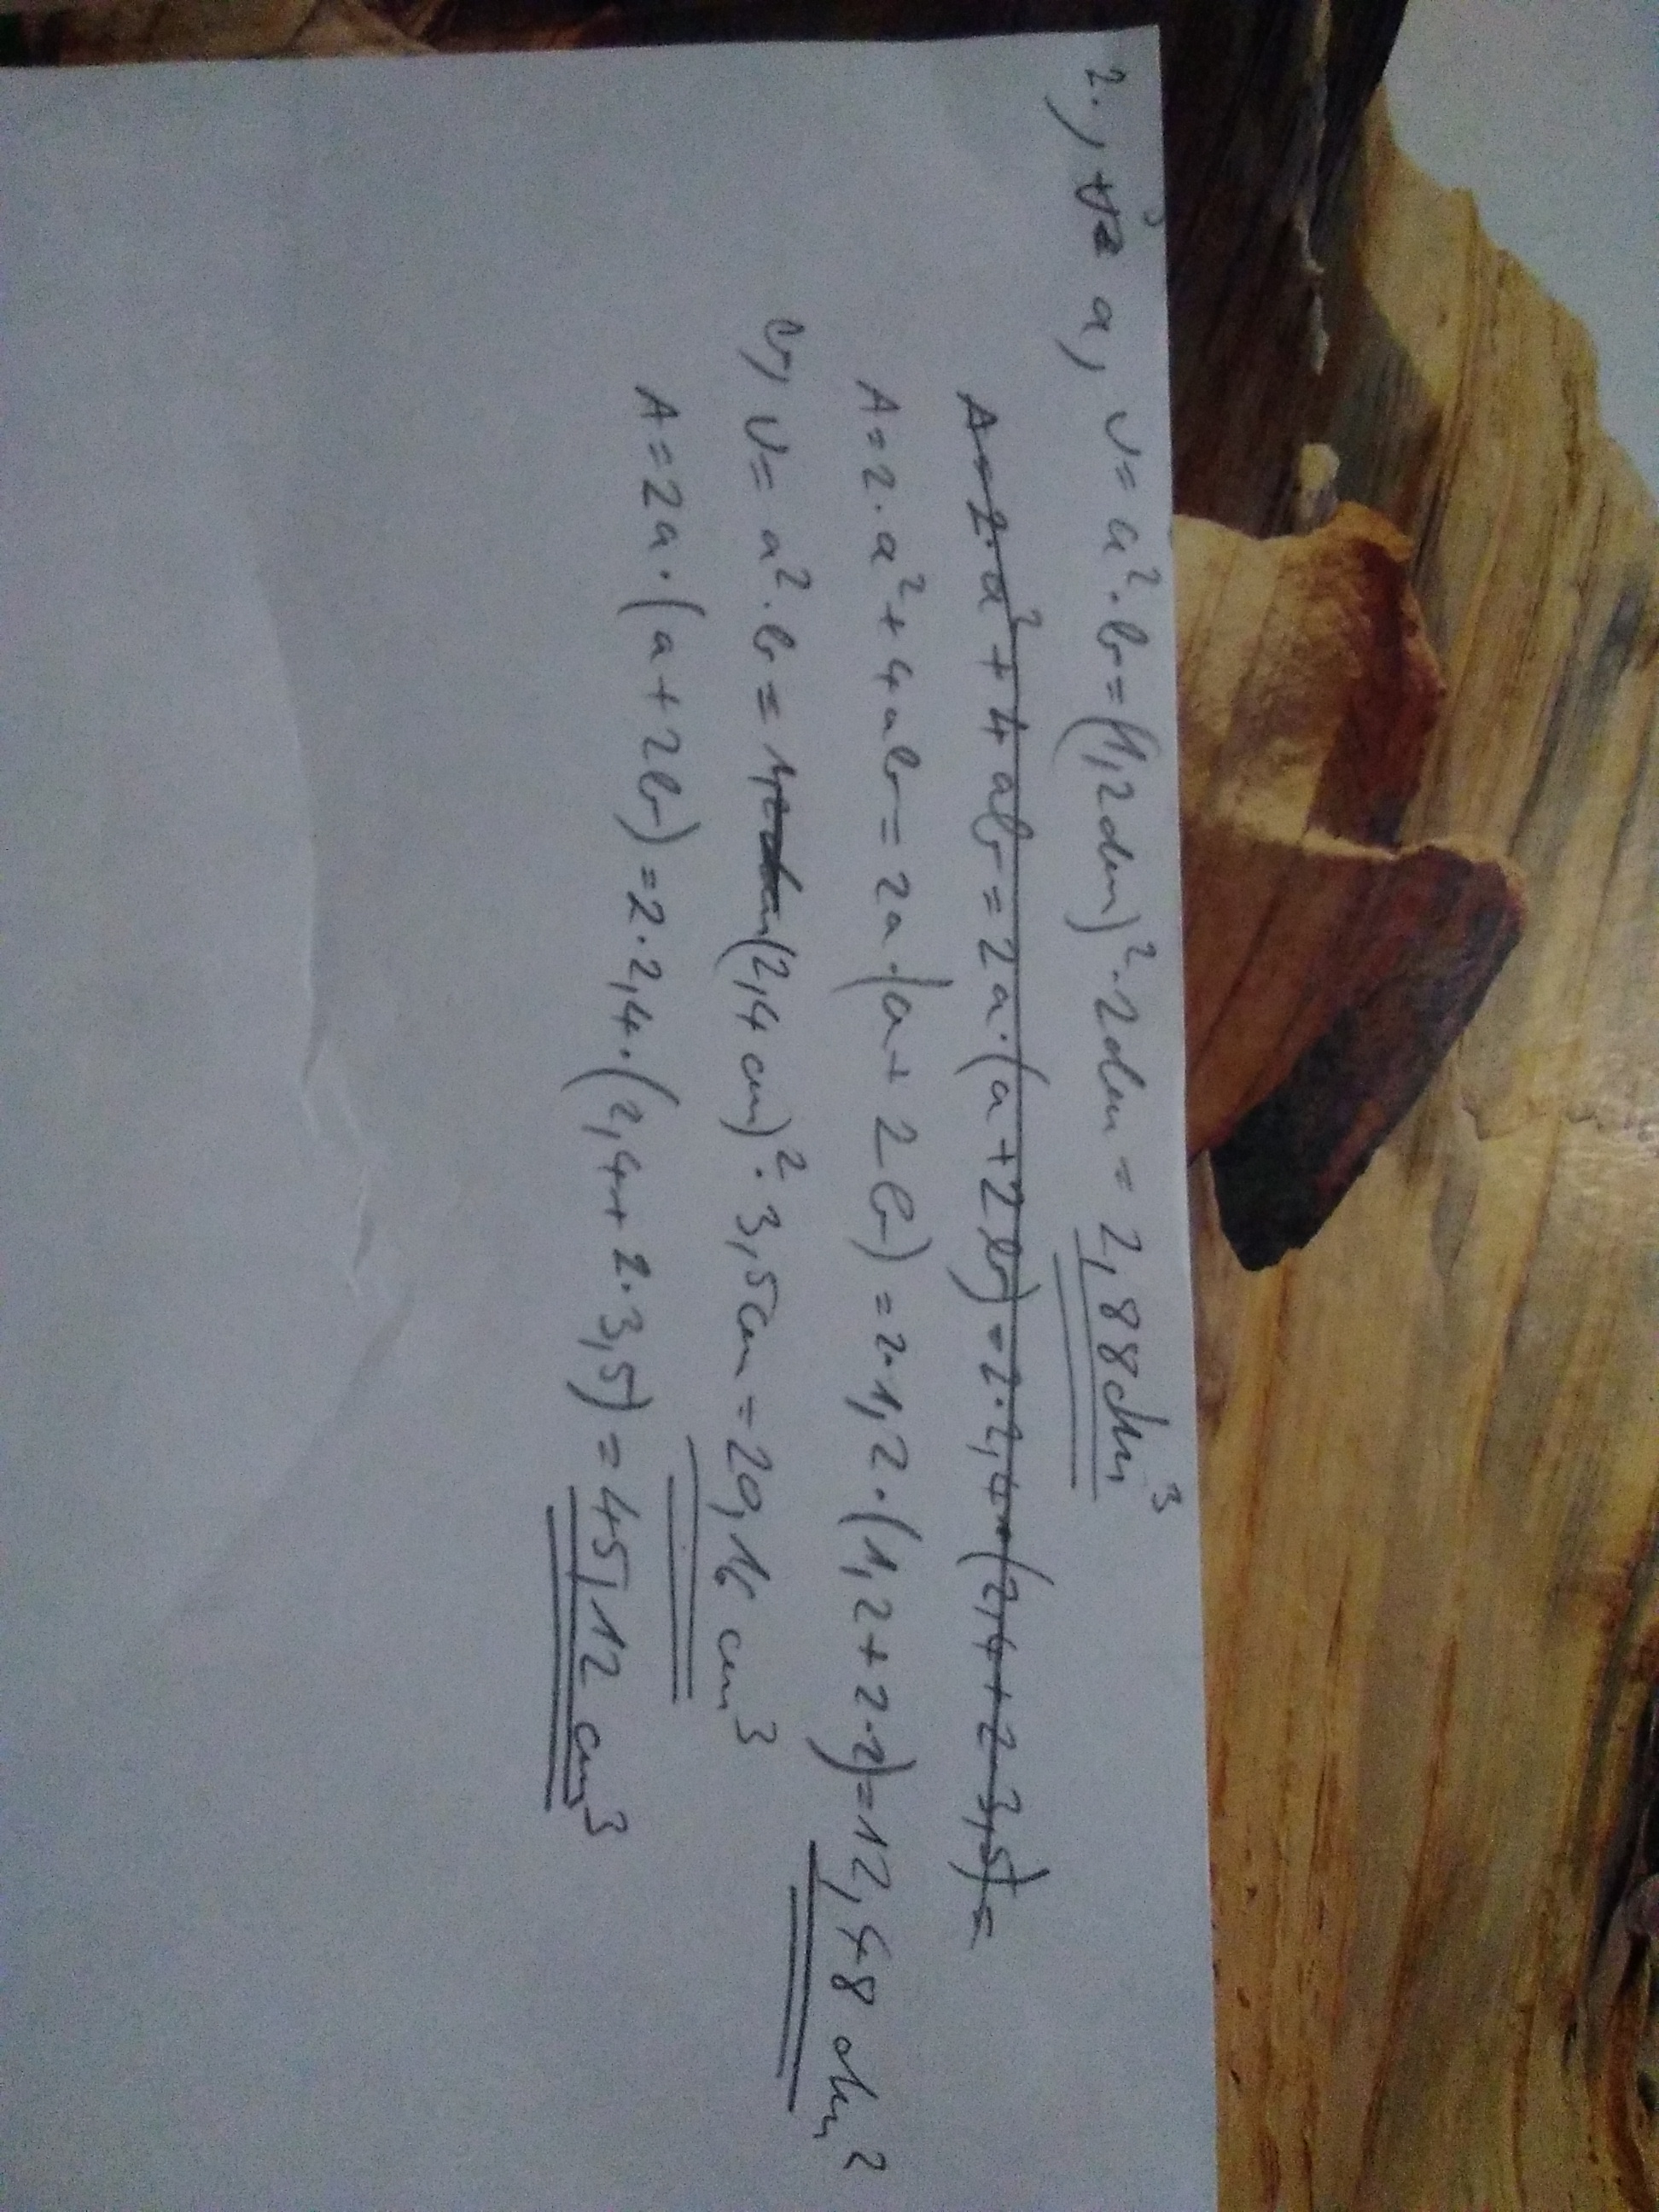 2., a, V = a² · b = (1,2dm)² · 2dm = 2,88dm³
A = 2 · a² + 4 ab = 2a · (a + 2b) = 2 · 2,4 · (2,4 + 2 · 3,5) =
A = 2 · a² + 4ab = 2a · (a + 2b) = 2 · 1,2 · (1,2 + 2 · 2) = 12,48 dm²
b, V = a² · b = (2,4 cm)² · 3,5cm = 20,16 cm³
A = 2a · (a + 2b) = 2 · 2,4 · (2,4 + 2 · 3,5) = 45,12 cm³